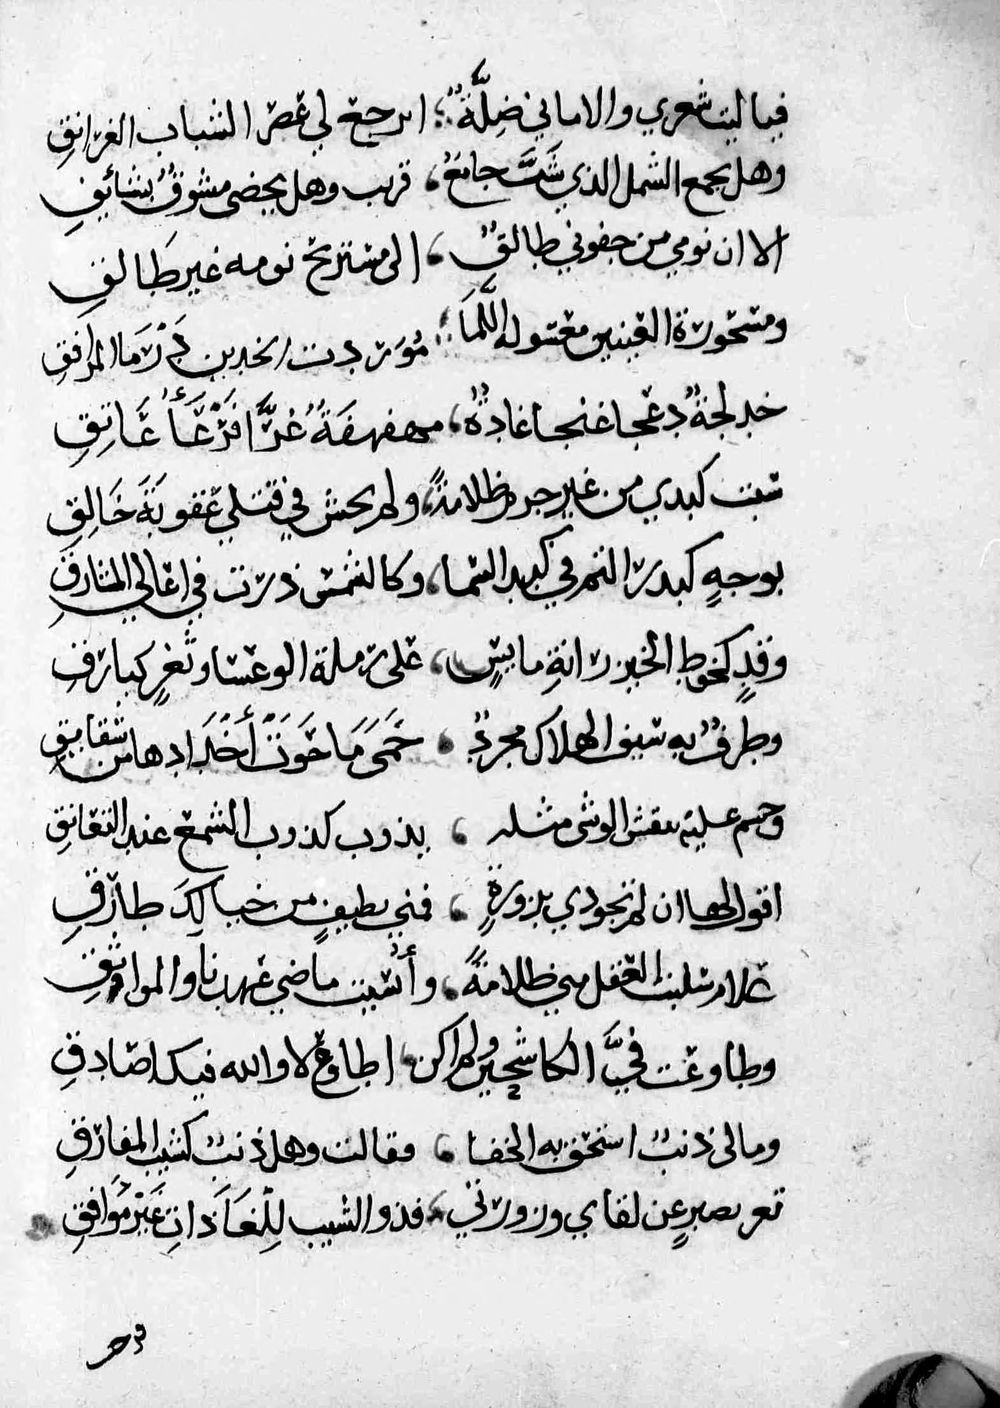 فيا ليت شعري والاماني ضِلَّةٌ ؛ ايرجع لي عصر الشباب الغرانقِ
وهل يجمع الشمل الذي شَتَّ جامعٌ ، قريب وهل يحضى مشوقٌ بشائقِ
الا ان نومي من جفوني طالقٌ ، الى مستريح نومه غير طَالقِ
ومسحورة العينين معسوله اللَّمَا ؛ مُوَرَّدت الخدين دَرْمَا المرافقِ
خدلجةٌ دعجا غنجا غادةٌ ، مهفهفَةٌ غرَّا فَرْعَأُ عَاتِقِ
سبت كبدي من غير جرمٍ ظلامةً ، ولم يخش في قتلي عقوبَةَ خَالِقِ
بوجهٍ كبدر التم في كبد السما ، وكالشمس ذرت في اعالي المشارقِ
وقدٍ كخوط الخيزرانةِ مايسٍ ، على رملة الوعسا وثغرٍ كبارقِ
وطرفٌ به سيف الهلاك مجردٌ ، حَمَى مَا حَوَتْ أَخْدَادها من شقايقِ
وجسم عليه نقش الوشي مثله ، يذوب كذوب الشمع عند التعانقِ
اقول لها ان لم تجودي بزورةٍ ، فمني بطيفٍ من خيالكِ طارقِ
علام سلبت العقل مني ظلامةً ، وأُنسيت ماضي عهدنا والمواثقِ
وطاوعت فيَّ الكاشحين ولم اكن ، اطاوع لا والله فيك اصادقِ
ومالي ذنبٌ استحق به الجفا ، فقالت وهل ذنبٌ كشيب المفارقِ
تعز بصبرٍ عن لقاي وزورتي ، فذو الشيب لِلْغَادَاتِ غَيْرُ مُوَافِقِ